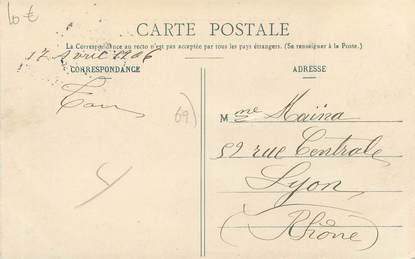 10 €
CARTE POSTALE
La Correspondance au recto n'est pas acceptée par tous les pays étrangers. (Se renseigner à la Poste.)
17 Avril 1906
CORRESPONDANCE
ADRESSE
69)
Mme Maïna
52 rue Centrale
Lyon
(Rhône)